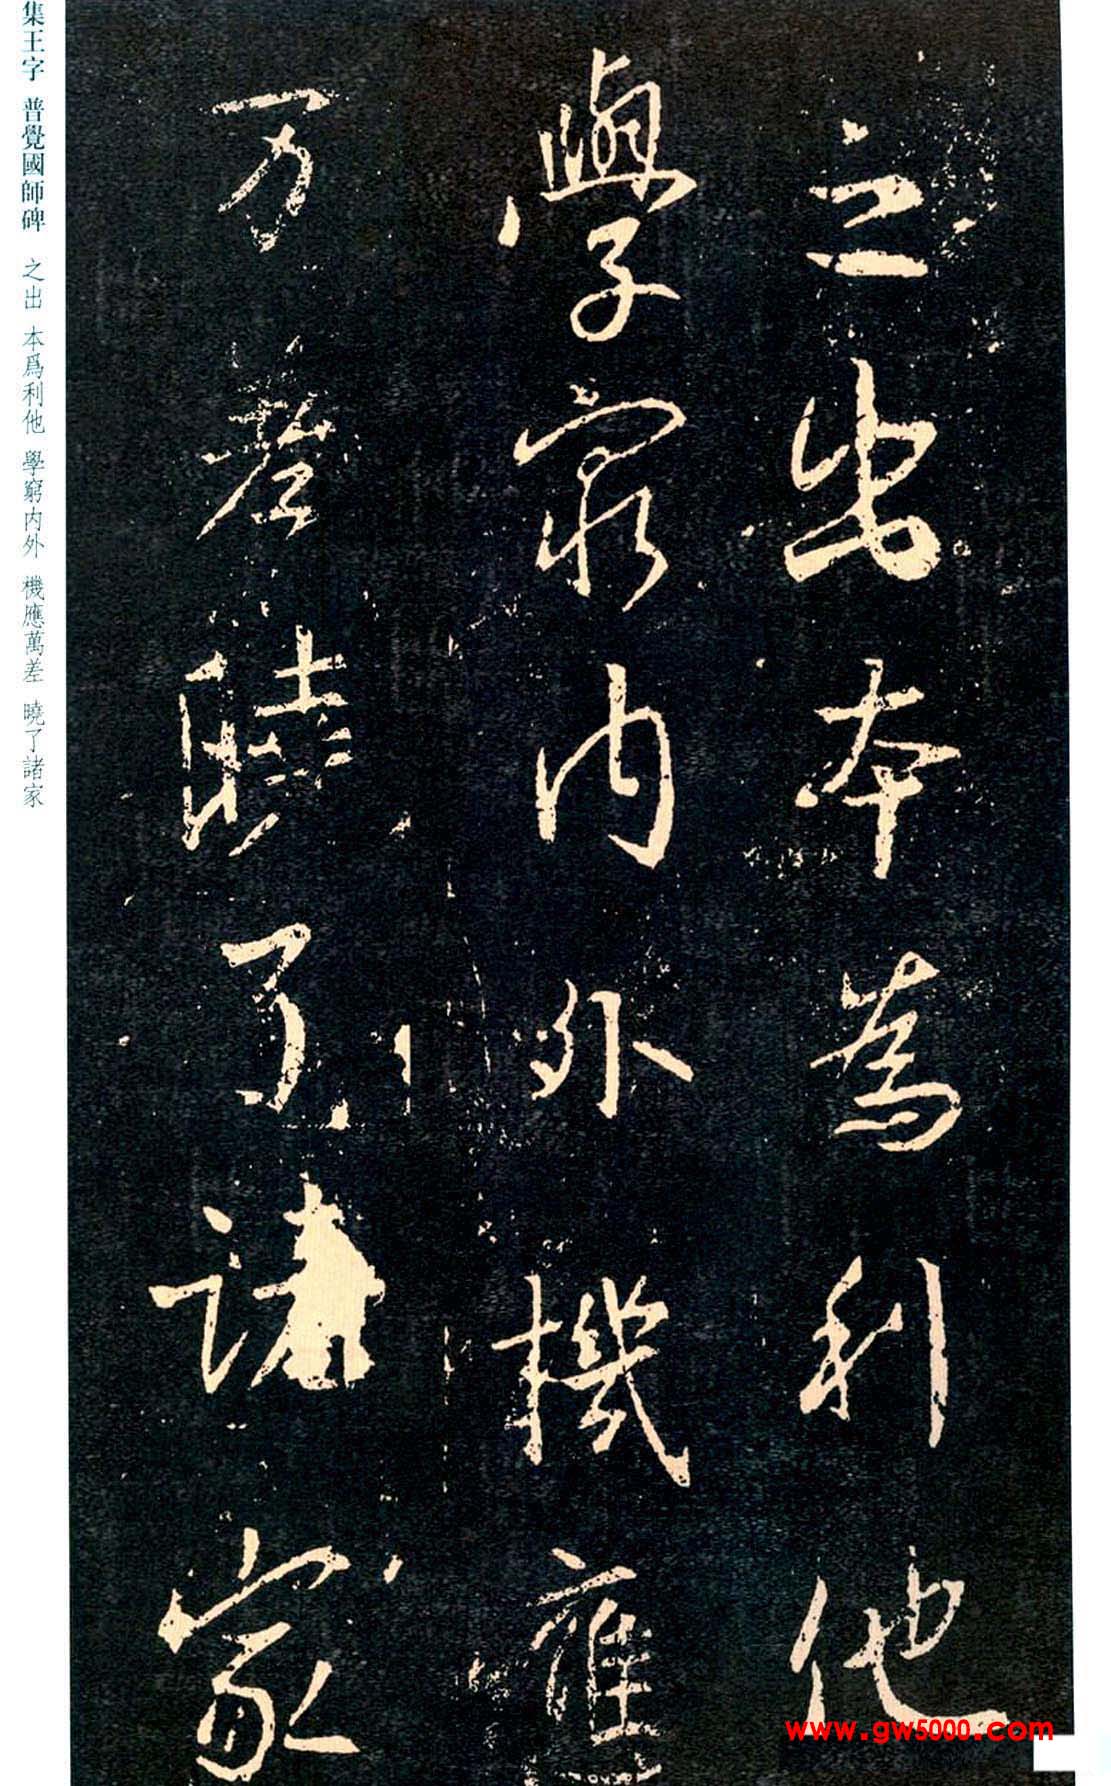 之出本為利他
學窮内外機應
万差曉了諸家
集王字 普覺國師碑 之出 本爲利他 學窮内外 機應萬差 曉了諸家
www.gw5000.com